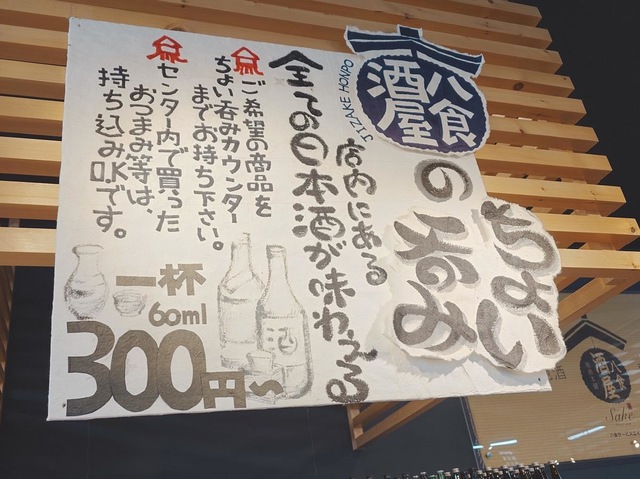 八食
酒屋
JIZAKE HONPO
の
ちょい
呑み
店内にある
全ての日本酒が味わえる
ご希望の商品を
ちょい呑みカウンター
までお持ち下さい。
センター内で買った
おつまみ等は、
持ち込みOKです。
一杯
60ml
300円~
八食
酒屋
Sake
酒